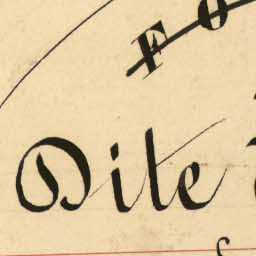 FO
Dite